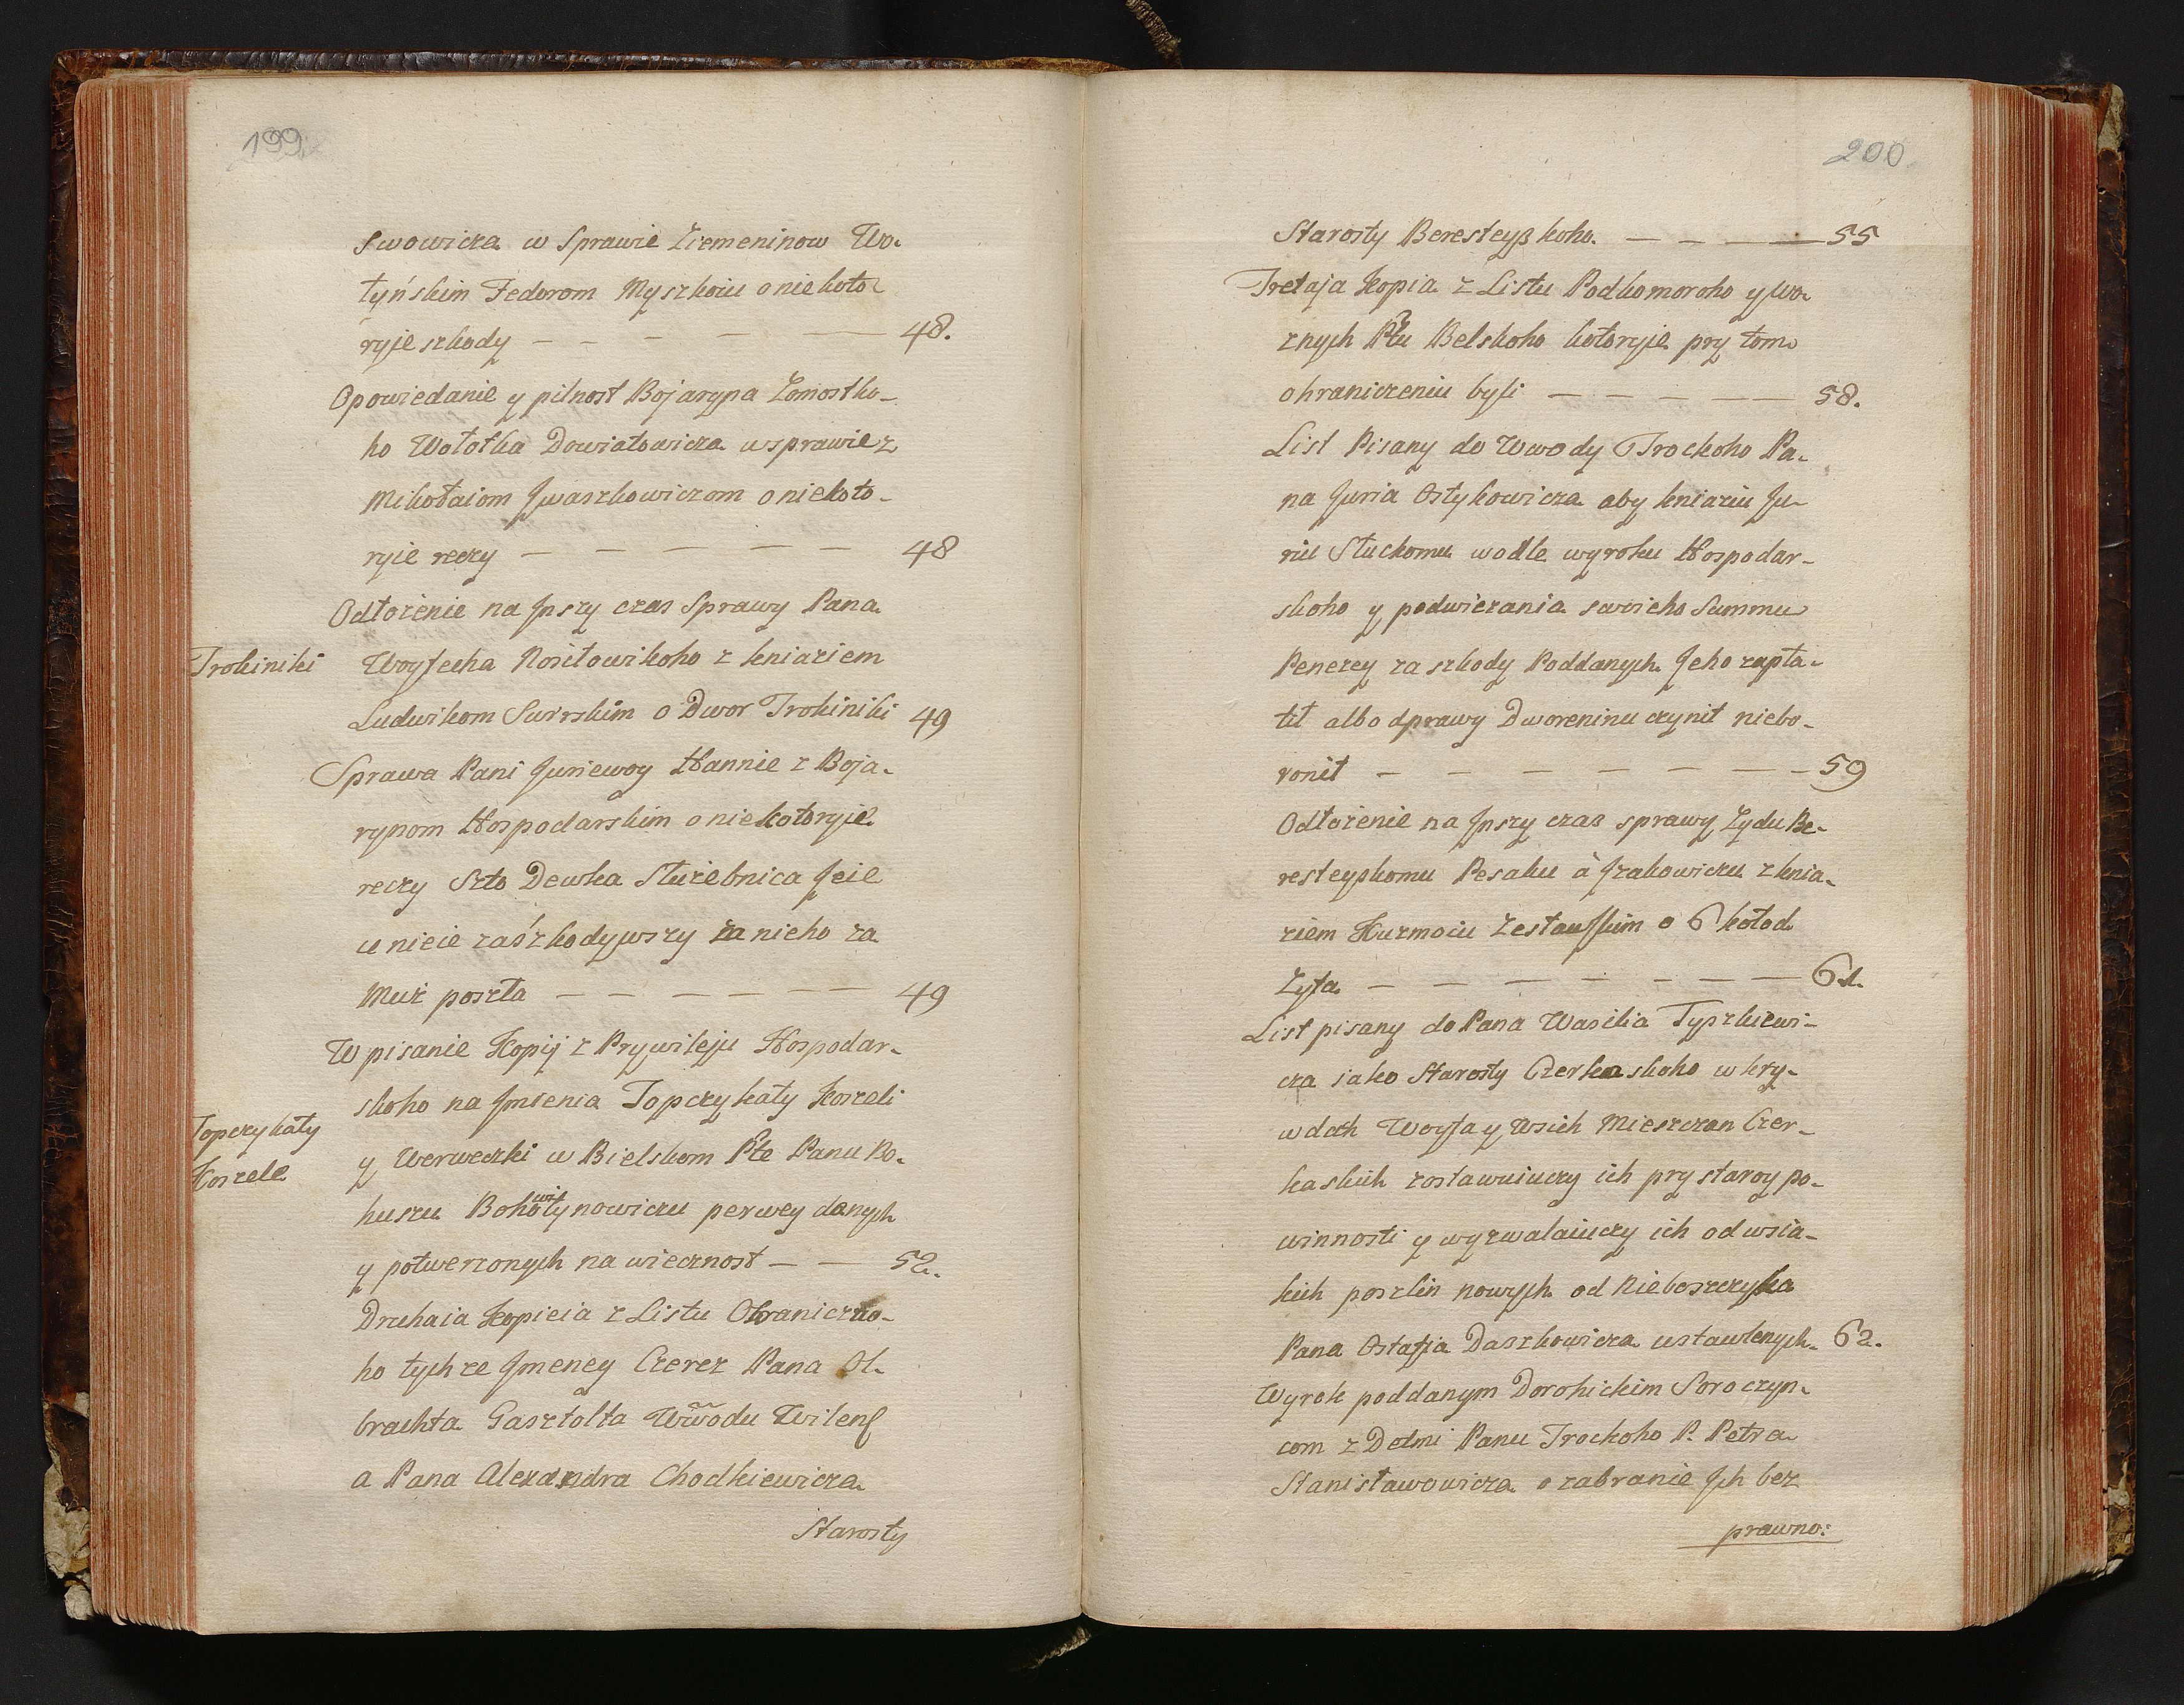 199.
Swowicza w Sprawie Ziemeninow Wo-
łyńskim Fedorom Myszkoiu o niekoto
ryje szkody — — — — — 48.
Opowiedanie y pilnost Bojaryna Zomostko-
ho Wołotka Dowiatowicza w sprawie z
Mikołaiom Jwaszkowiczom o niekoto-
ryie reczy — — — — — 48
Odłożenie na Jnszy czas Sprawy Pana
Trokiniki
Woytecha Nosiłowskoho z kniaziem
Ludwikom Swirskim o Dwor Trokiniki 49
Sprawa Pani Juriewoy Hannie z Boja-
rynom Hospodarskim o niekotoryie
reczy Szto Dewka Służebnica Jeie
u nieie zaszkodywszy za nieho za
Muż poszła — — — — — — 49
Wpisanie Kopij z Prywileju Hospodar-
skoho na Jmienia Topczykały Koszeli
Topczykały
Koszele
y Werweczki w Bielskom Pte Panu Bo-
huszu Bohowitynowiczu perwey danych
y potwerzonych na wiecznost — — 52.
Druhaia Kopieia z Listu Ohraniczno-
ho tych ze Jmeney Czerez Pana Ol-
brachta Gasztolta Wwodu Wilens
a Pana Alexandra Chodkiewicza
Starosty
200.
Starosty Beresteyskoho. — — — — 55
Tretaja Kopia z Listu Podkomoroho y Wo-
znych Ptu Belskoho kotoryie pry tom
ohraniczeniu byli — — — — — — 58.
List Pisany do Wwody Trockoho Pa-
na Juria Ostykowicza aby kniaziu Ju-
riu Słuckomu wodle wyroku Hospodar-
skoho y podwiezania swoieho Summu
Penezey za szkody Poddanych Jeho zapła-
tił albo dprawy Dworeninu czynit niebo-
ronił — — — — — — — 59
Odłożenie na Jnszy czas sprawy Zydu Be-
resteyskomu Pesaku à Jzakowiczu z knia-
ziem Kuzmoiu Zestawskim o 6 kołod
Zyta — — — — — — — 61.
List pisany do Pana Wasilia Tyszkiewi-
cza jako Starosty Czerkaskoho w kry-
wdach Woyta y Wsich Mieszczan Czer-
kaskich zostawuiuczy ich pry staroy po-
winnosti y wyzwalaiuczy ich od wsia-
kich poszlin nowych od Nieboszczyka
Pana Ostafia Daszkowicza ustawlenych. 62.
Wyrok poddanym Dorohickim Soroczyn-
com z Detmi Panu Trockoho P. Petra
Stanisławowicza o zabranie Jch bez
prawno: